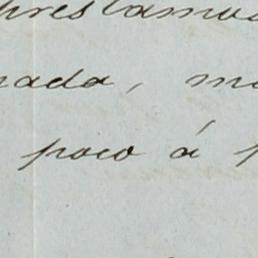 prestamos
nada, m
poco á p